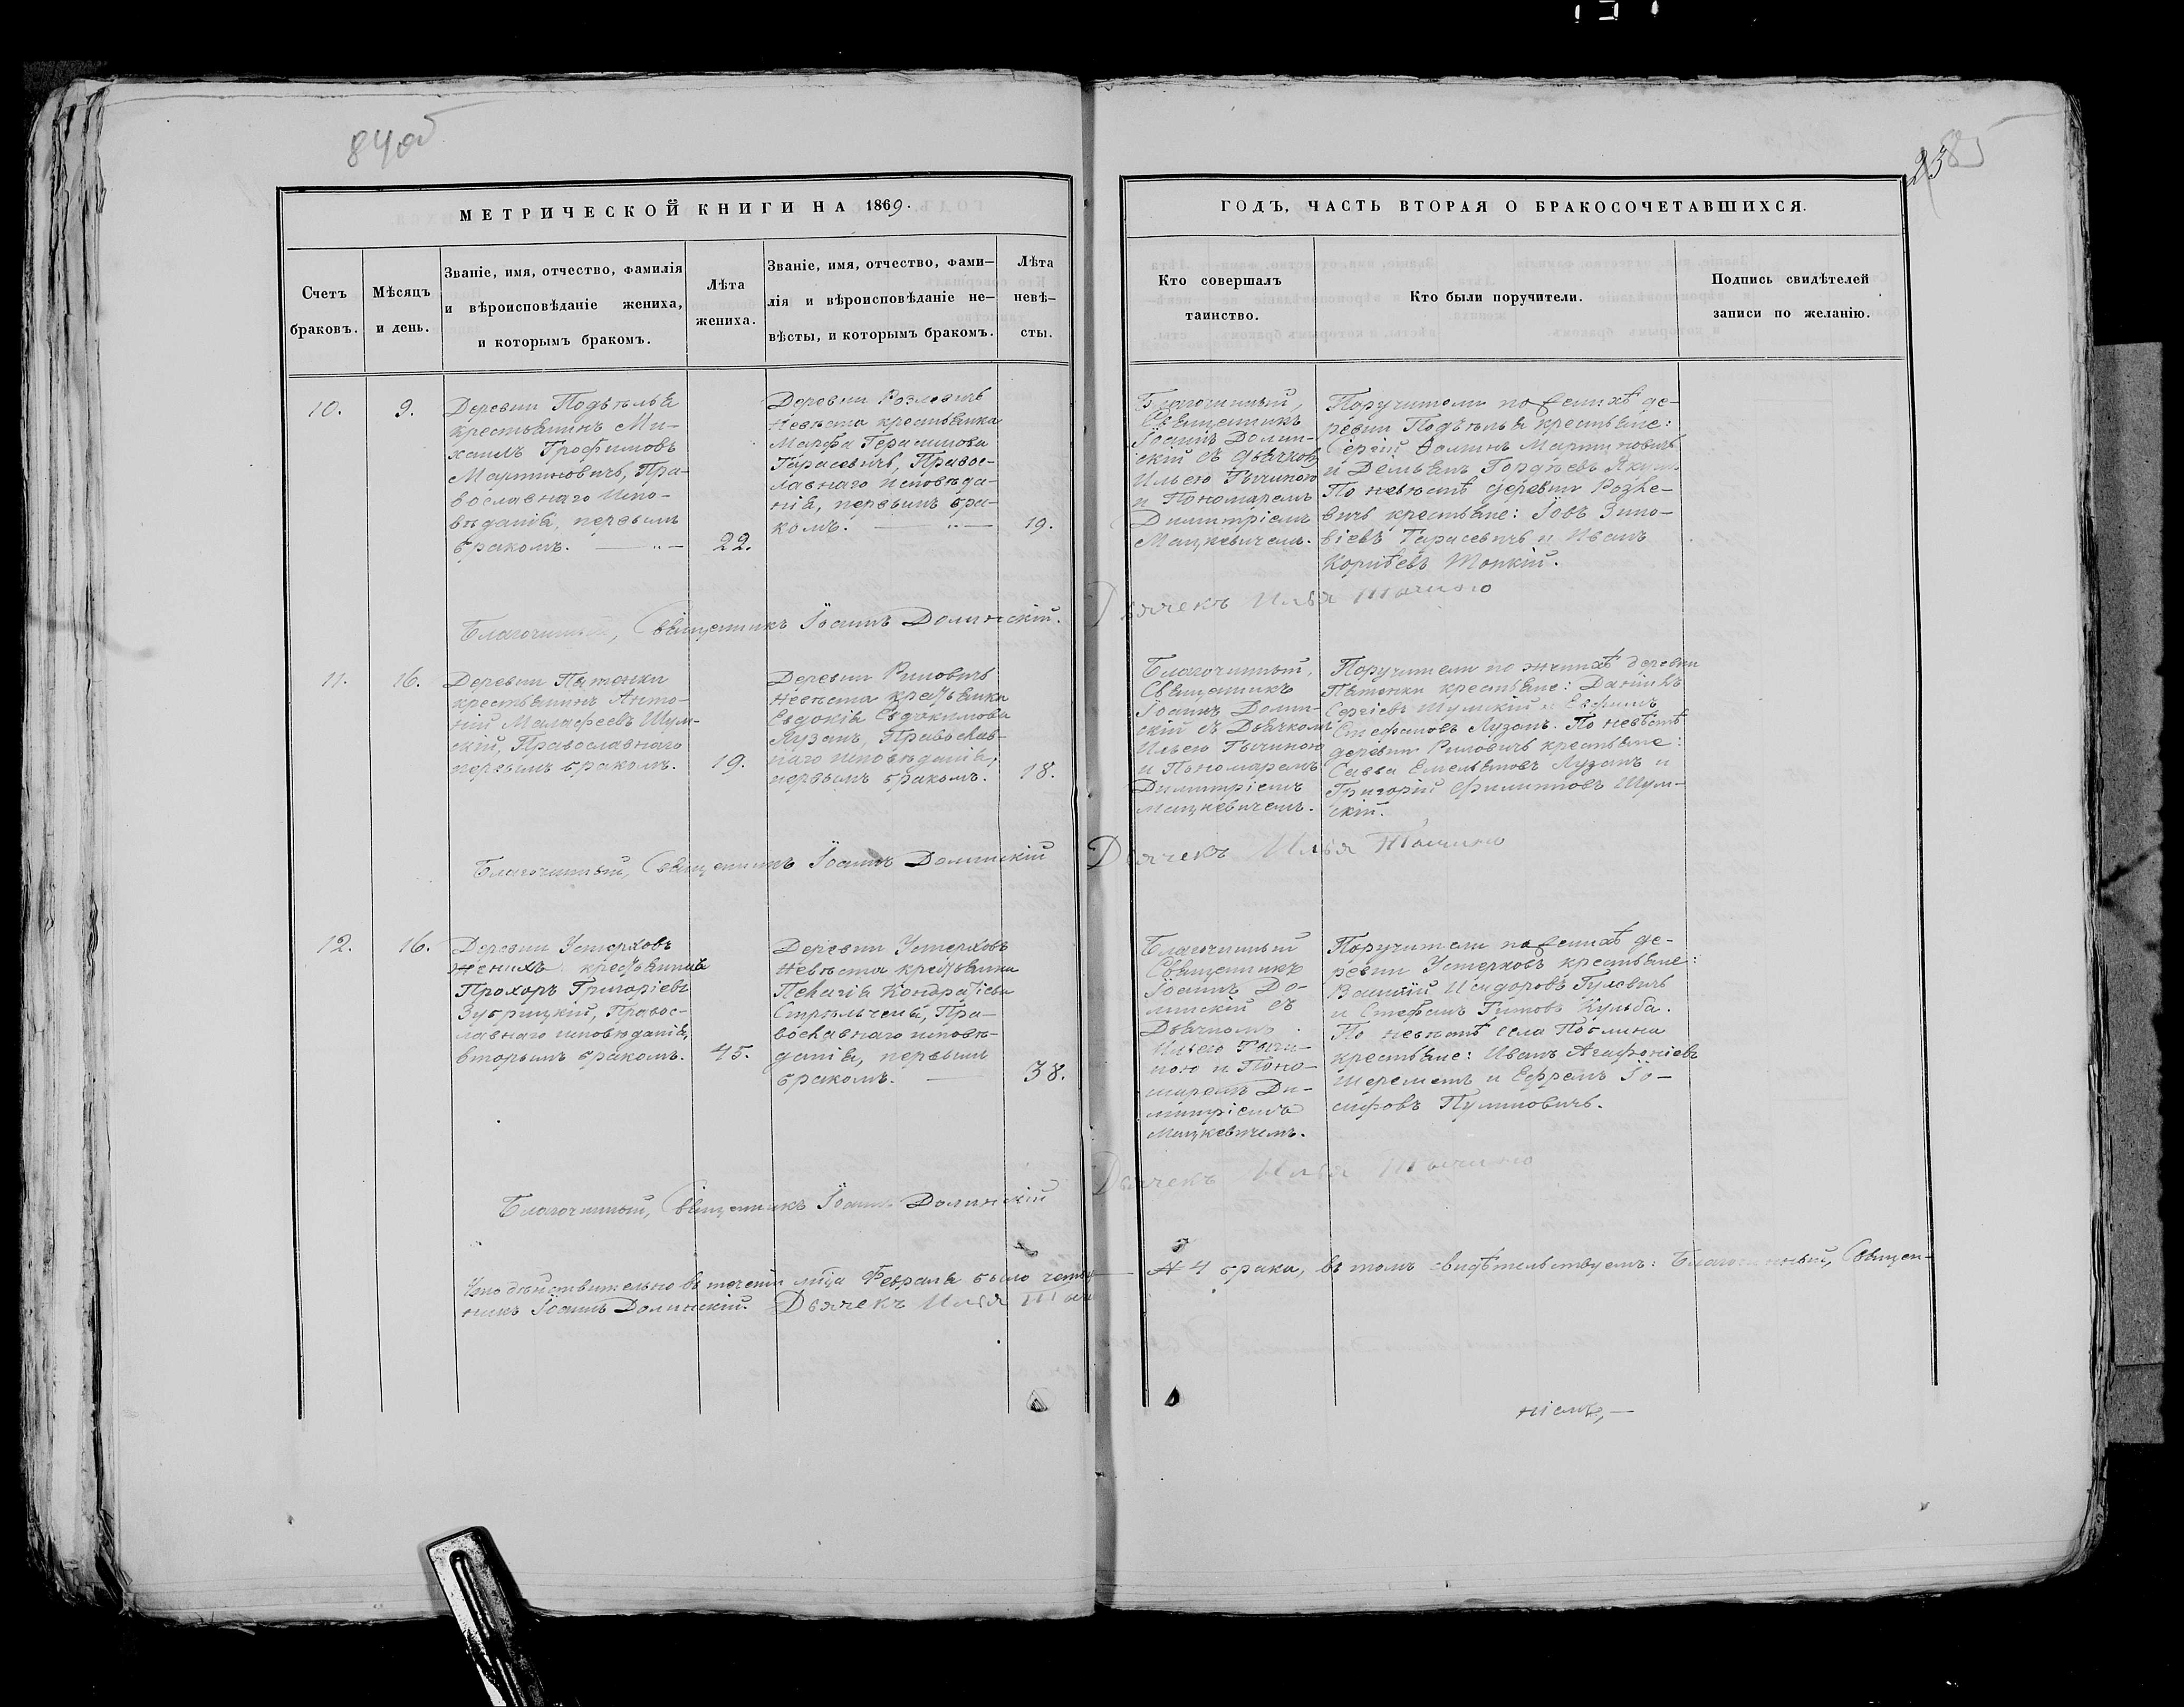 84об
23 85
МЕТРИЧЕСКОЙ КНИГИ НА 1869.
ГОДЪ, ЧАСТЬ ВТОРАЯ О БРАКОСОЧЕТАВШИХСЯ.
Счетъ
браковъ.
Мѣсяцъ
и день.
Званіе, имя, отчество, фамилія
и вѣроисповѣданіе жениха,
и которымъ бракомъ.
Лѣта
жениха.
Званіе, имя, отчество, фами–
лія и вѣроисповѣданіе не–
вѣсты, и которымъ бракомъ.
Лѣта
невѣ–
сты.
Кто совершалъ
таинство.
Кто были поручители.
Подпись свидѣтелей
записи по желанію.
10.
9.
Деревни Подѣтлья
крестьянинъ Ми-
хаилъ Трофимовъ
Мартиновичъ, Пра-
вославнаго испо-
вѣданія, первымъ
бракомъ.
22.
Деревни
невѣста крестьянка
Марфа Герасимова
Тарасевичъ, Правос-
лавнаго исповѣда-
нія, первымъ бра-
комъ.
19.
Благочинный,
Священникъ
Іоаннъ Долин-
скій съ Дьячкомъ
Ильею Тычиною
и Пономаремъ
Димитріемъ
Мацкевичемъ.
Поручители по женихѣ де-
ревни Подѣтлья крестьяне:
Сергій Ѳоминъ Мартиновичъ
и Демьянъ Гордѣевъ
По невѣстѣ деревни
крестьяне: Іовъ Зино-
віевъ Тарасевичъ и Иванъ
Корнѣевъ
Благочинный, Священникъ Іоаннъ Долинскій.
Дьячекъ Илья Тычино
11.
16.
Деревни Пятенки
крестьянинъ Анто-
ній Малафеевъ Шум-
скій, Православнаго
первымъ бракомъ.
19.
Деревни Римовичъ
невѣста крестьянка
Евдокія Евдокимова
Лузанъ, Православ-
наго исповѣданія,
первымъ бракомъ.
18.
Благочинный,
Священникъ
Іоаннъ Долин-
скій съ Дьячкомъ
Ильею Тычиною
и Пономаремъ
Димитріемъ
Мацкевичемъ.
Поручители по женихѣ деревни
Пятенки крестьяне: Даніилъ
Сергіевъ Шумскій и Евфимъ
Стефановъ Лузанъ. По невѣстѣ
деревни Римовичъ крестьяне:
Савва Емельяновъ Лузанъ и
Григорій Филипповъ Шум-
скій.
Благочинный, Священникъ Іоаннъ Долинскій
Дьячекъ Илья Тычино
12.
16.
Деревни Устерховъ
женихъ крестьянинъ
Прохоръ Григоріевъ
Зубрицкій, Правос-
лавнаго исповѣданія,
вторымъ бракомъ.
45.
Деревни Устерховъ
невѣста крестьянка
Пелагія Кондратіева
Стрѣльченя, Пра-
вославнаго исповѣ-
данія, первымъ
бракомъ.
38.
Благочинный
Священникъ
Іоаннъ До-
линскій съ
Дьячкомъ
Ильею Тычи-
ною и Поно-
маремъ Ди-
митріемъ
Мацкевичемъ.
Поручители по женихѣ де-
ревни Устерховъ крестьяне:
Василій Исидоровъ Гулевичъ
и Стефанъ Титовъ Кульба.
По невѣстѣ села
крестьяне: Иванъ Агафоніевъ
Шереметъ и Ефремъ Іо-
сифовъ
Благочинный, Священникъ Іоаннъ Долинскій
Дьячекъ Илья Тычино
Что дѣйствительно въ теченіи мѣсяца Февраля было четы
4 брака, въ томъ свидѣтельствуемъ: Благочинный, Священ-
никъ Іоаннъ Долинскій. Дьячекъ Илья Тычи
ніемъ,—